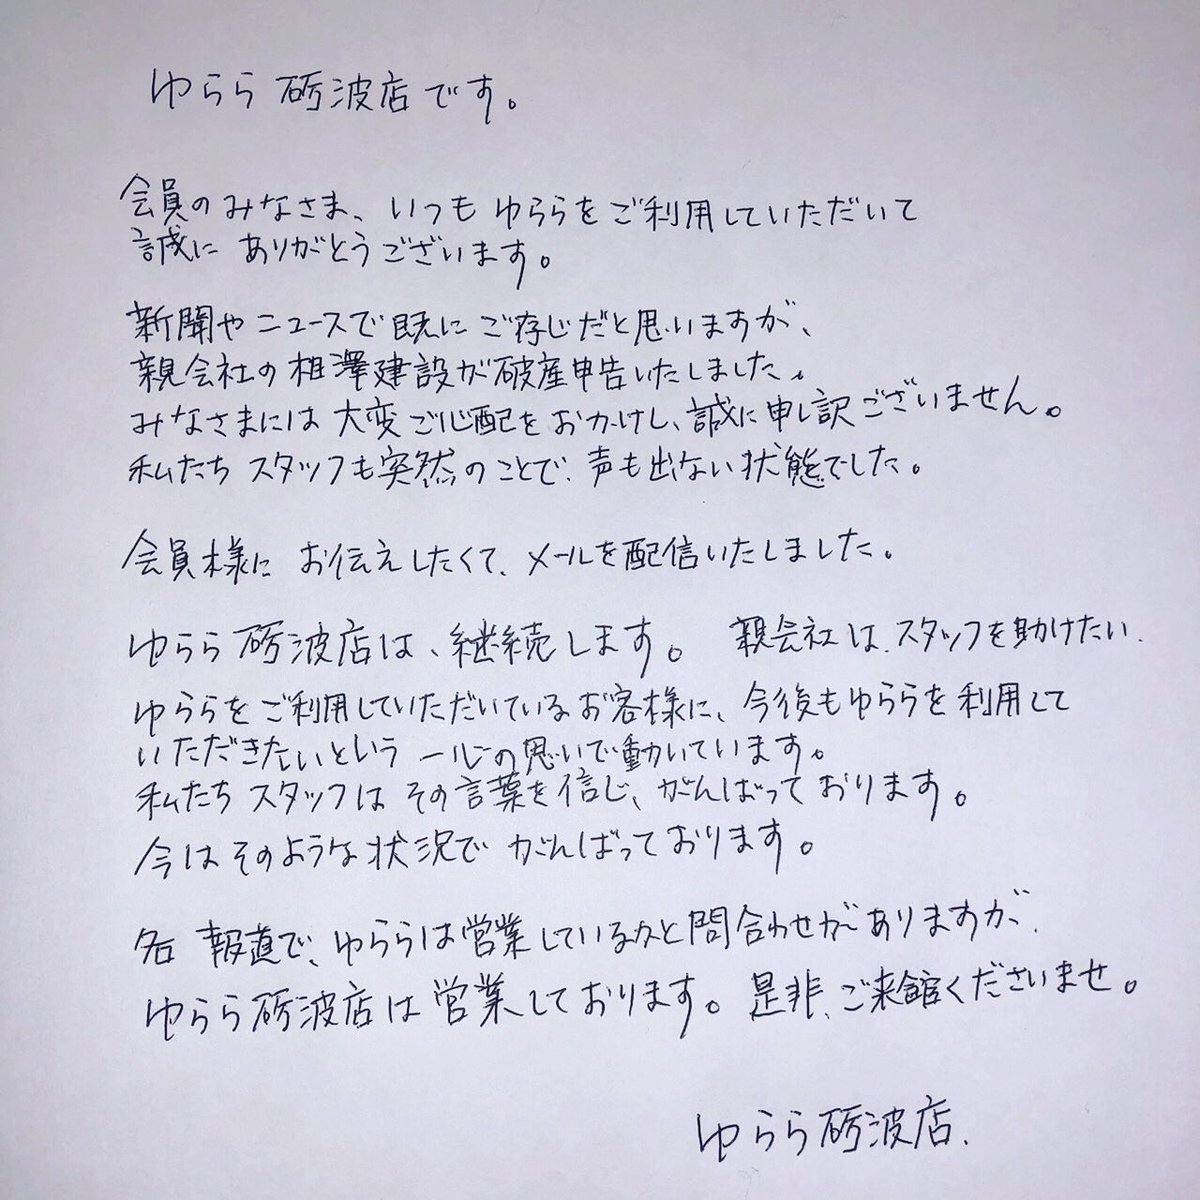 ゆらら 砺波店です。
会員のみなさま、いつも ゆららを ご利用していただいて
誠に ありがとうございます。
新聞や ニュースで 既に ご存じだと思いますが、
親会社の 相澤建設が破産申告いたしました。
みなさまには 大変ご心配を おかけし、誠に申し訳ございません。
私たち スタッフも突然のことで、声も出ない状態でした。
会員様に お伝えしたくて、メールを配信いたしました。
ゆらら 砺波店は、継続します。 親会社は、スタッフを助けたい、
ゆららを ご利用していただいているお客様に、今後もゆららを利用して
いただきたいという 一心の思いで動いています。
私たち スタッフは その言葉を信じ、がんばっております。
今はそのような状況で がんばっております。
各 報道で、ゆららは営業しているかと問合わせがありますが、
ゆらら 砺波店は営業しております。是非、ご来館くださいませ。
ゆらら 砺波店.